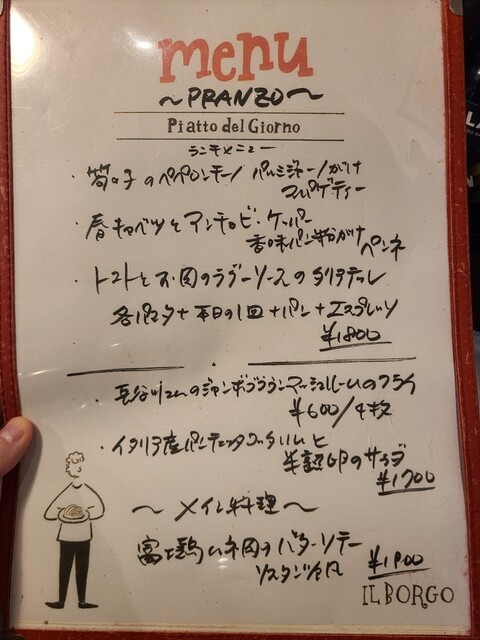 menu
〜PRANZO〜
Piatto del Giorno
ランチメニュー
・筍の子のペペロンチーノ パルミジャーノがけ
スパゲティー
・春キャベツとアンチョビ・ケッパー
香味パン粉がけ ペンネ
・トマトとお肉のラグーソースのタリアテッレ
各パスタ+本日の1皿+パン+エスプレッソ
¥1800
・長谷川さんのジャンボブラウンマッシュルームのフライ
¥600/4枚
・イタリア産パンチェッタコッタ
半熟卵のサラダ
¥1700
〜メイン料理〜
富士鶏ムネ肉のバターソテー
¥1900
IL BORGO